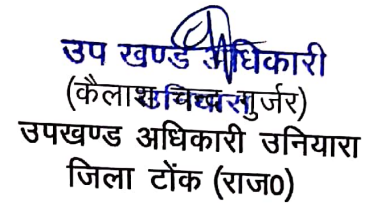 उप खण्ड अधिकारी
(कैलाश चन्द गुर्जर)
उनियारा
उपखण्ड अधिकारी उनियारा
जिला टोंक (राज0)